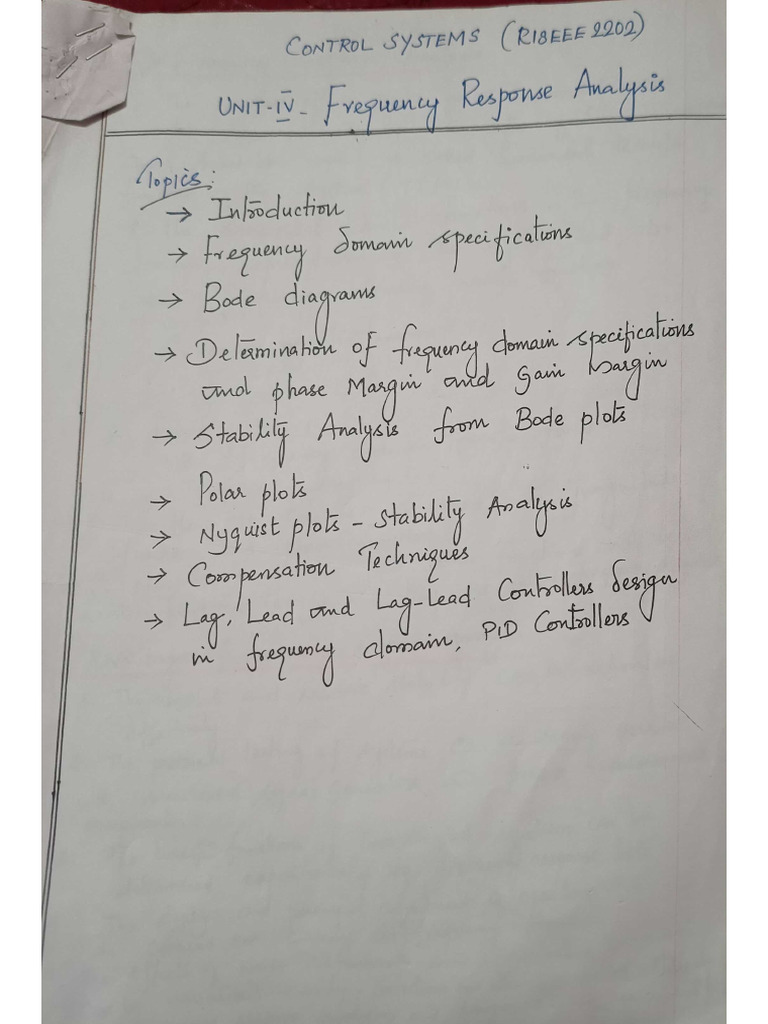 CONTROL SYSTEMS (R18EEE2202)
UNIT-IV - Frequency Response Analysis
Topics:
→ Introduction
→ Frequency domain specifications
→ Bode diagrams
→ Determination of frequency domain specifications
and phase Margin and Gain Margin
→ Stability Analysis from Bode plots
→ Polar plots
→ Nyquist plots - Stability Analysis
→ Compensation Techniques
→ Lag, Lead and Lag-Lead Controllers design
in frequency domain, PID Controllers